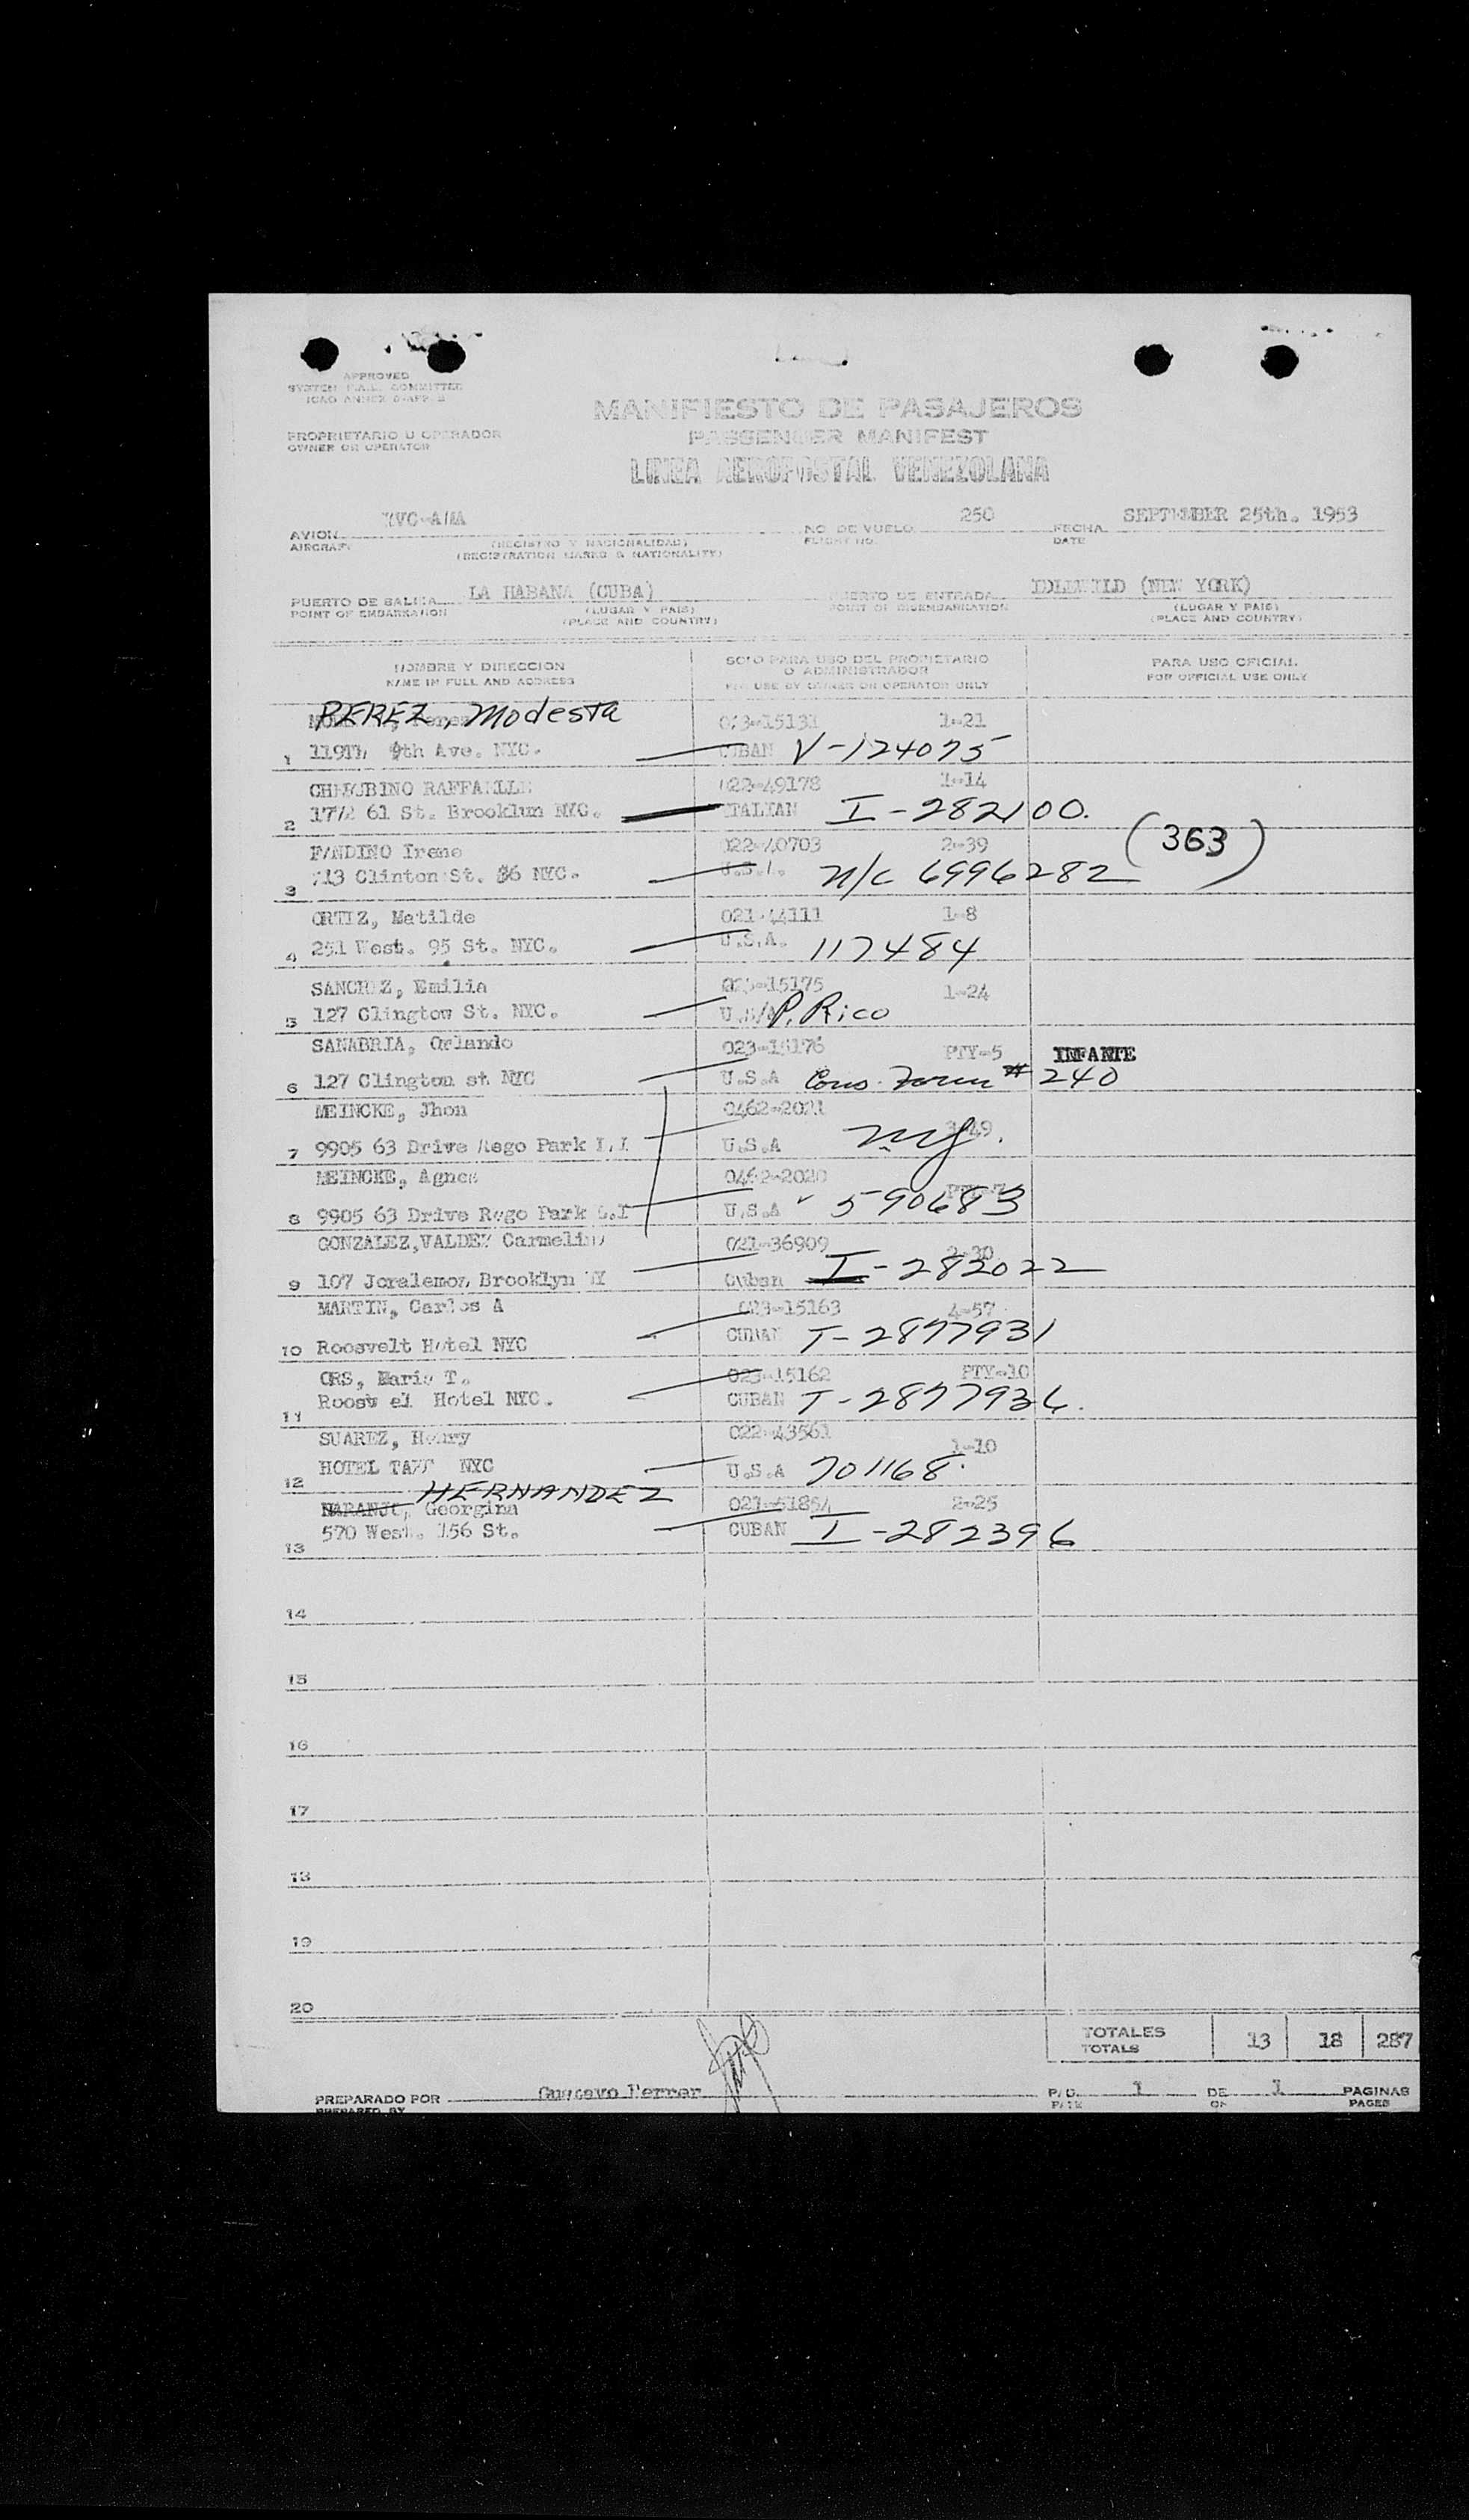 APPROVED
SYSTEM F.A.L. COMMITTEE
ICAO ANNEX
MANIFIESTO DE PASAJEROS
PROPRIETARIO U OPERADOR
PASSENGER MANIFEST
OWNER OR OPERATOR
LINEA AEROPOSTAL VENEZOLANA
250 SEPTEMBER 25th. 1953
AVION NO. DE VUELO FECHA
AIRCRAFT (REGISTRO Y NACIONALIDAD) FLIGHT NO. DATE
(REGISTRATION MARKS & NATIONALITY)
LA HABANA (CUBA) IDLEWILD (NEW YORK)
PUERTO DE SALIDA PUERTO DE ENTRADA
POINT OF EMBARKATION (LUGAR Y PAIS) POINT OF DISEMBARKATION (LUGAR Y PAIS)
(PLACE AND COUNTRY) (PLACE AND COUNTRY)
NOMBRE Y DIRECCION SOLO PARA USO DEL PROPIETARIO PARA USO OFICIAL
O ADMINISTRADOR
NAME IN FULL AND ADDRESS FOR USE BY OWNER OR OPERATOR ONLY FOR OFFICIAL USE ONLY
PEREZ, Modesta 023-15131 1-21
1 119Th 9th Ave. NYC. CUBAN V-124075
CHERUBINO RAFFAELLE 022-49178 1-14
2 1772 61 St. Brooklun NYC. ITALIAN I-282100.
FANDINO Irene 022-40703 2-39 (363)
3 713 Clinton St. #6 NYC. U.S.A. N/C 6996282
ORTIZ, Matilde 021-44111 1-8
4 251 West. 95 St. NYC. U.S.A. 117484
SANCHEZ, Emilia 023-15175 1-24
5 127 Clingtow St. NYC. U.S/A P. Rico
SANABRIA, Orlando 023-15176 PTY-5 INFANTE
6 127 Clington st NYC U.S.A Cons. Form # 240
MEINCKE, Jhon 0462-2021 3-49
7 9905 63 Drive Rego Park L.I U.S.A
MEINCKE, Agnes 0462-2020 PTY-7
8 9905 63 Drive Rego Park L.I U.S.A 590683
GONZALEZ, VALDEZ Carmelino 021-36909 2-30
9 107 Joralemon Brooklyn NY Cuban I-282022
MARTIN, Carlos A 023-15163 4-57
10 Roosvelt Hotel NYC CUBAN T-2877931
ORS, Maria T. 023-15162 PTY-10
11 Hotel NYC. CUBAN T-2877936.
SUAREZ, Henry 022-43561 1-10
12 HOTEL TAFT NYC U.S.A 701168.
HERNANDEZ
NARANJO, Georgina 021-51854 2-25
13 570 West. 156 St. CUBAN I-282396
14
15
16
17
18
19
20
TOTALES 13 18 287
TOTALS
PREPARADO POR Gustavo Ferrer PAG. 1 DE 1 PAGINAS
PREPARED BY PAGE OF PAGES